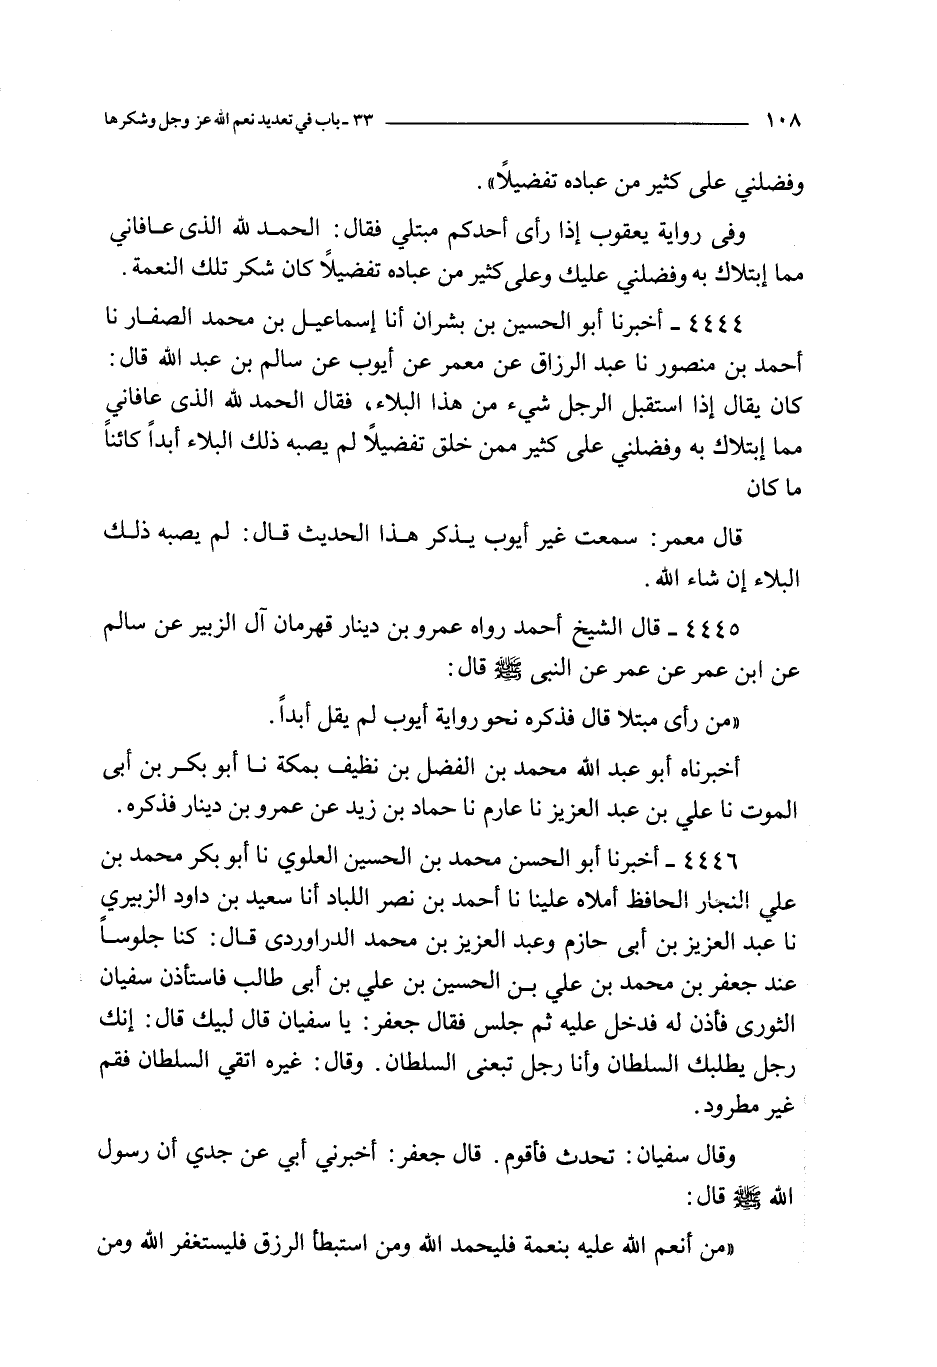 ١٠٨ ـــــــ ٣٣ ـ باب في تعديد نعم الله عز وجل وشكرها
وفضلني على كثير من عباده تفضيلاً».
وفى رواية يعقوب إذا رأى أحدكم مبتلي فقال: الحمد لله الذى عافاني
مما إبتلاك به وفضلني عليك وعلى كثير من عباده تفضيلاً كان شكر تلك النعمة.
٤٤٤٤ ـ أخبرنا أبو الحسين بن بشران أنا إسماعيل بن محمد الصفار نا
أحمد بن منصور نا عبد الرزاق عن معمر عن أيوب عن سالم بن عبد الله قال:
كان يقال إذا استقبل الرجل شيء من هذا البلاء، فقال الحمد لله الذى عافاني
مما إبتلاك به وفضلني على كثير ممن خلق تفضيلاً لم يصبه ذلك البلاء أبداً كائناً
ما كان
قال معمر: سمعت غير أيوب يذكر هذا الحديث قال: لم يصبه ذلك
البلاء إن شاء الله.
٤٤٤٥ ـ قال الشيخ أحمد رواه عمرو بن دينار قهرمان آل الزبير عن سالم
عن ابن عمر عن عمر عن النبى ﷺ قال:
«من رأى مبتلا قال فذكره نحو رواية أيوب لم يقل أبداً.
أخبرناه أبو عبد الله محمد بن الفضل بن نظيف بمكة نا أبو بكر بن أبى
الموت نا علي بن عبد العزيز نا عارم نا حماد بن زيد عن عمرو بن دينار فذكره.
٤٤٤٦ ـ أخبرنا أبو الحسن محمد بن الحسين العلوي نا أبو بكر محمد بن
علي النجار الحافظ أملاه علينا نا أحمد بن نصر اللباد أنا سعيد بن داود الزبيري
نا عبد العزيز بن أبى حازم وعبد العزيز بن محمد الدراوردى قال: كنا جلوساً
عند جعفر بن محمد بن علي بن الحسين بن علي بن أبى طالب فاستأذن سفيان
الثورى فأذن له فدخل عليه ثم جلس فقال جعفر: يا سفيان قال لبيك قال: إنك
رجل يطلبك السلطان وأنا رجل تبعنى السلطان. وقال: غيره اتقي السلطان فقم
غير مطرود.
وقال سفيان: تحدث فأقوم. قال جعفر: أخبرني أبي عن جدي أن رسول
الله ﷺ قال:
«من أنعم الله عليه بنعمة فليحمد الله ومن استبطأ الرزق فليستغفر الله ومن